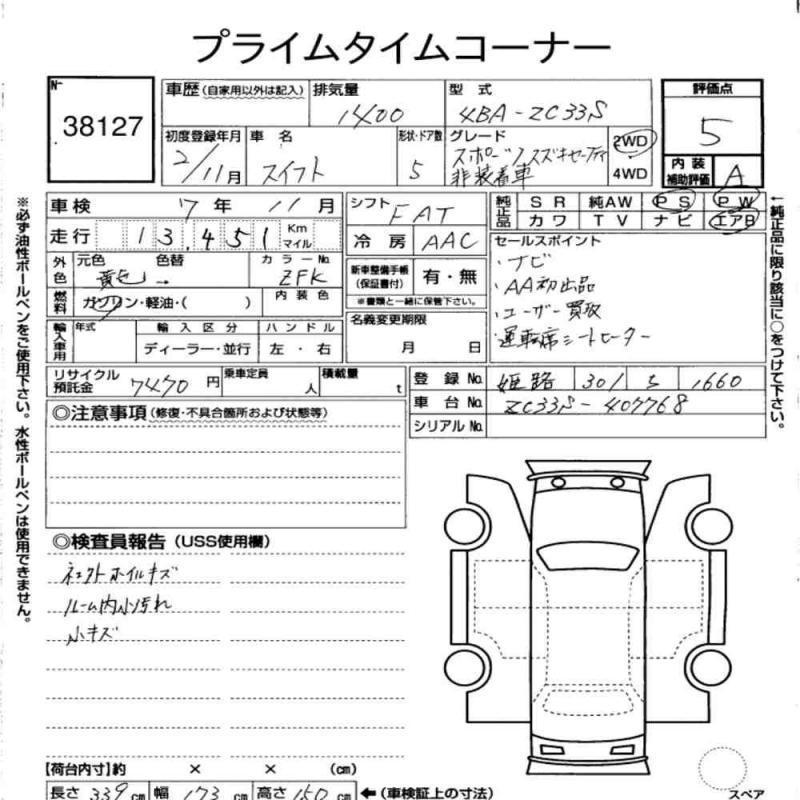 プライムタイムコーナー
No 38127
車歴（自家用以外は記入） 排気量 1400 型式 4BA-ZC33S 評価点 5
初度登録年月 2/11月 車名 スイフト 形状・ドア数 5 グレード スポーツ スズキセーフティ 非装着車 2WD 4WD 内装補助評価 A
車検 7年 11月 シフト FAT 純正品 SR 純AW PS PW
カワ TV ナビ エアB
走行 13,451 Km マイル 冷房 AAC
外色 元色 黄色 色替 カラーNo. ZFK 新車整備手帳（保証書付） 有・無
※書類と一緒に保管下さい。
燃料 ガソリン・軽油・( ) 内装色
セールスポイント
・ナビ
・AA初出品
・ユーザー買取
・運転席シートヒーター
名義変更期限 月 日
輸入車用 年式 輸入区分 ハンドル
ディーラー・並行 左・右
リサイクル預託金 7470円 乗車定員 人 積載量 t
登録No. 姫路 301 1660
車台No. ZC33S-407768
シリアルNo.
◎注意事項（修復・不具合個所および状態等）
◎検査員報告（USS使用欄）
ホイルキズ
ルーム内小汚れ
小キズ
【荷台内寸】約 × × (cm)
長さ 339cm 幅 173cm 高さ 150cm ←（車検証上の寸法）
スペア
※必ず油性ボールペンをご使用下さい。水性ボールペンは使用できません。
←純正品に限り該当に○をつけて下さい。